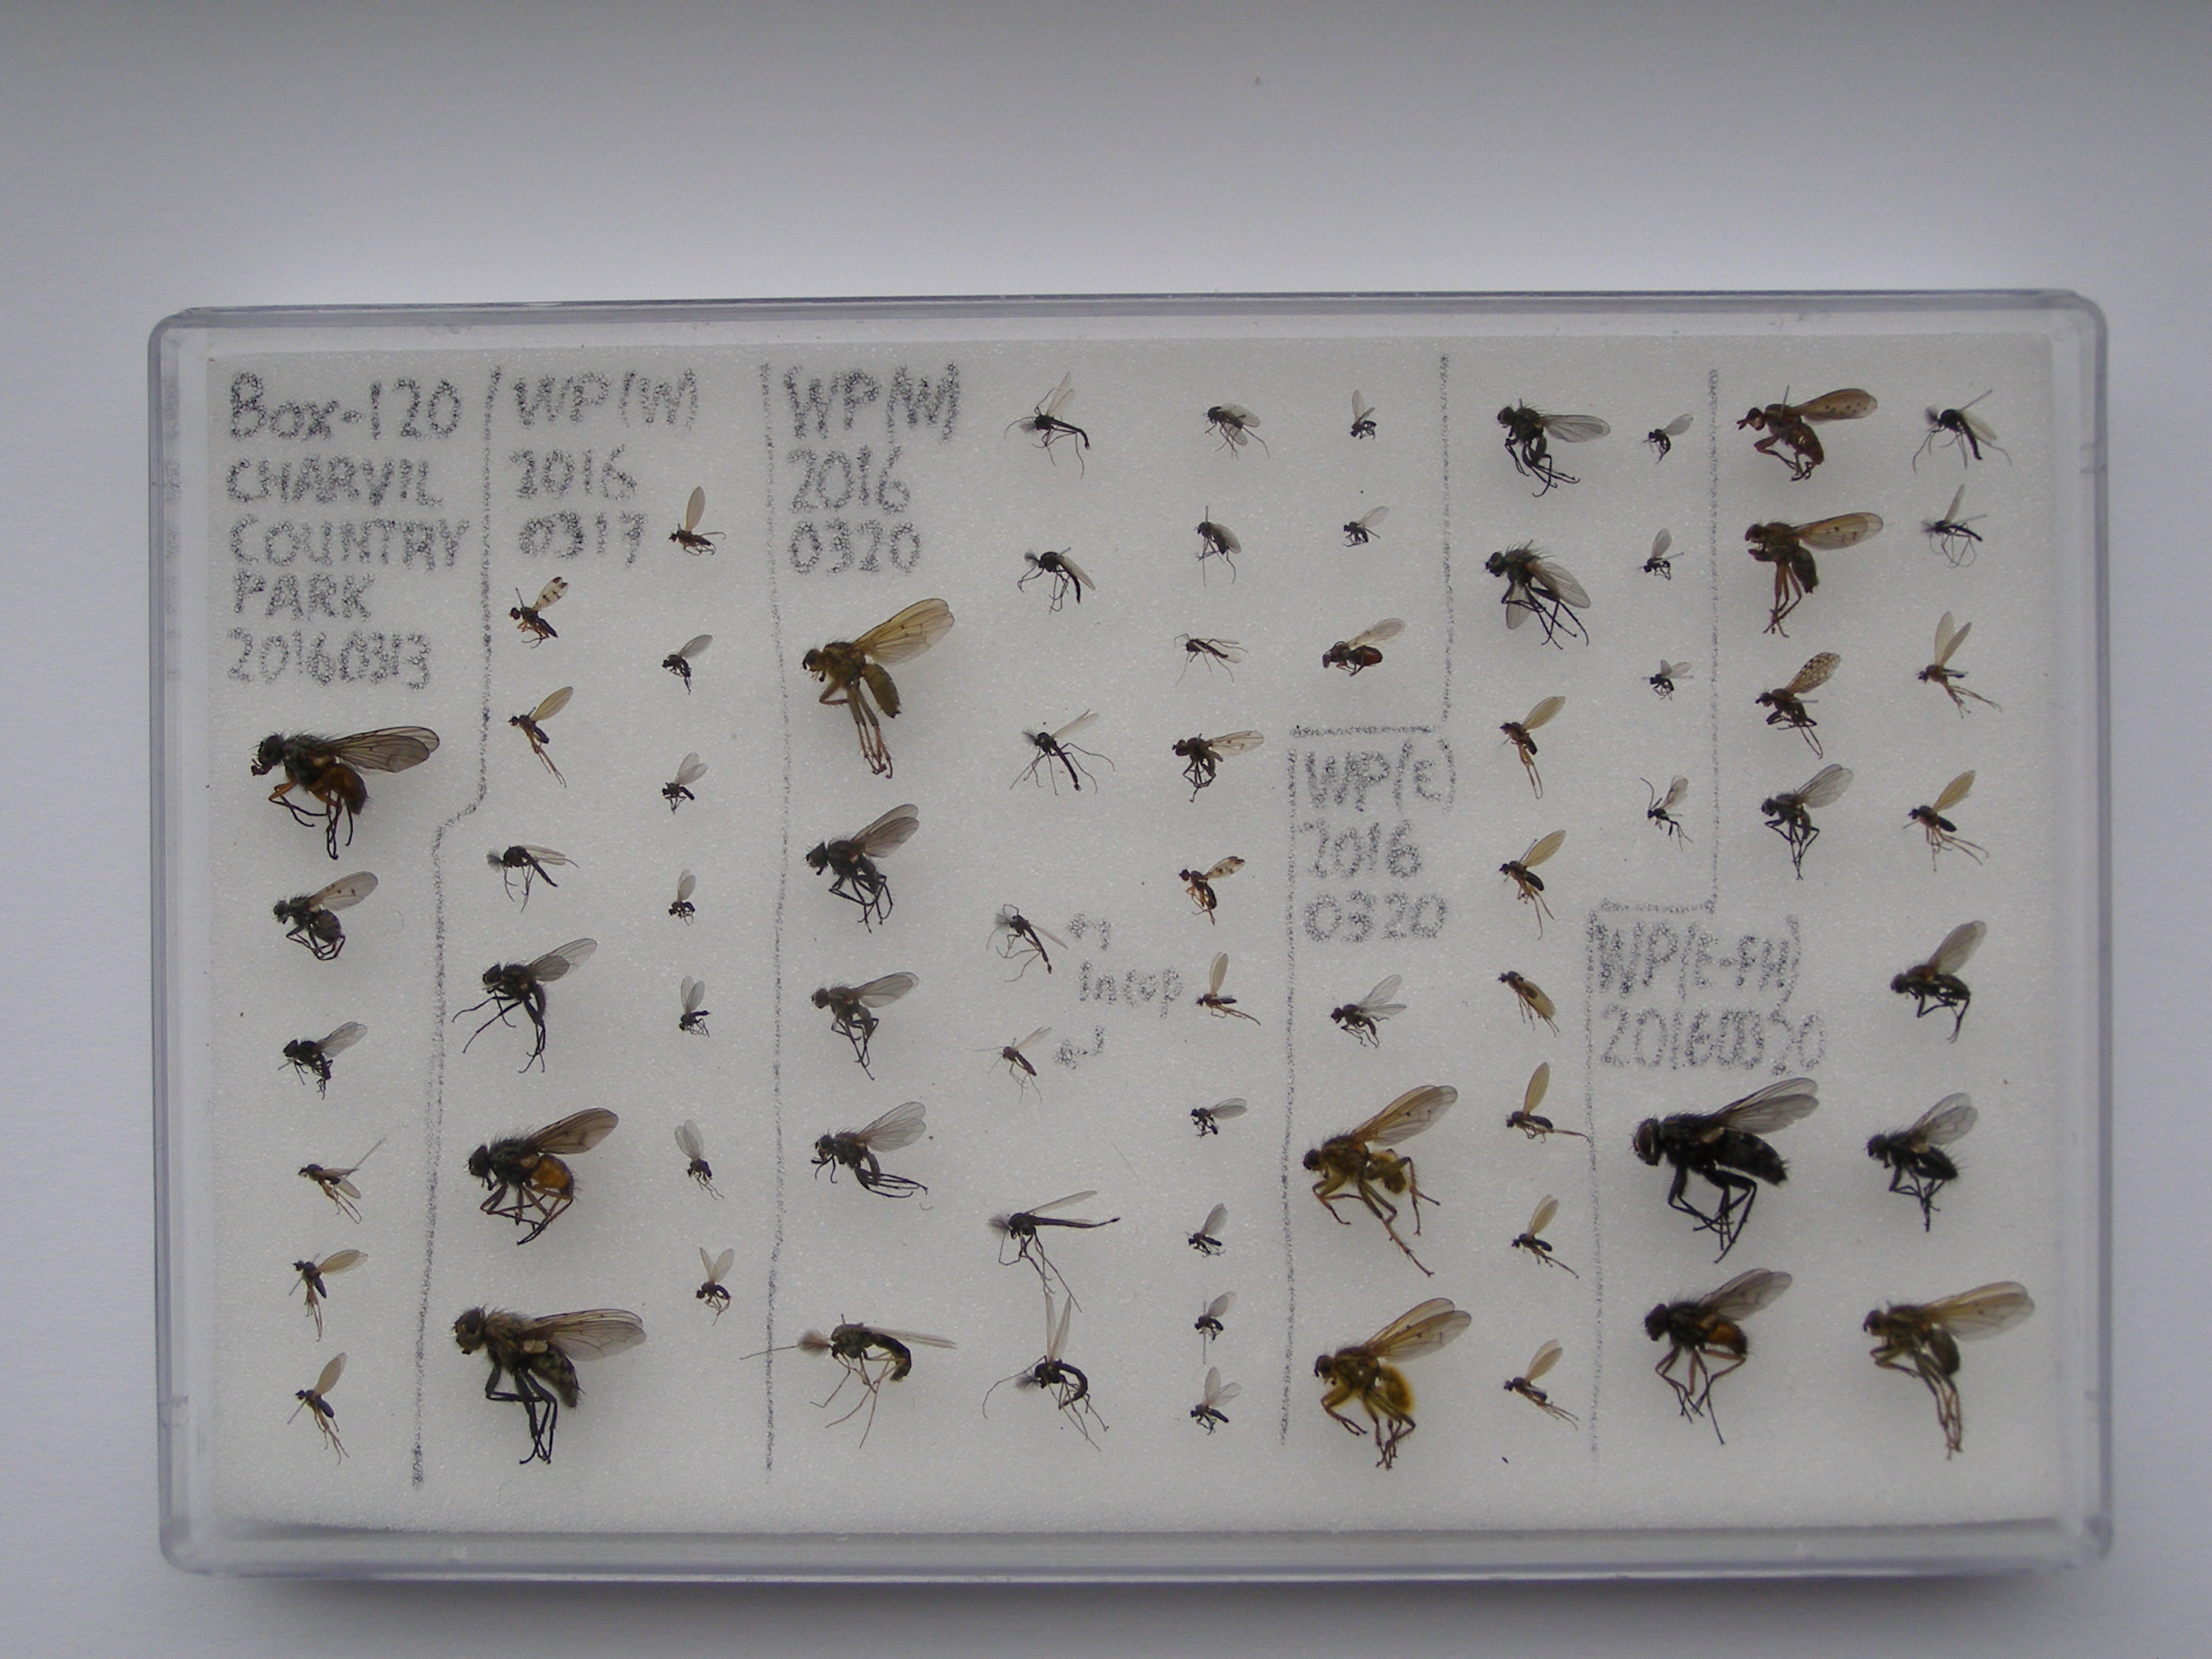 Box-120
CHARVIL
COUNTRY
PARK
20160313
WP(W)
2016
0317
WP(W)
2016
0320
WP(E)
2016
0320
WP(E-FH)
20160320